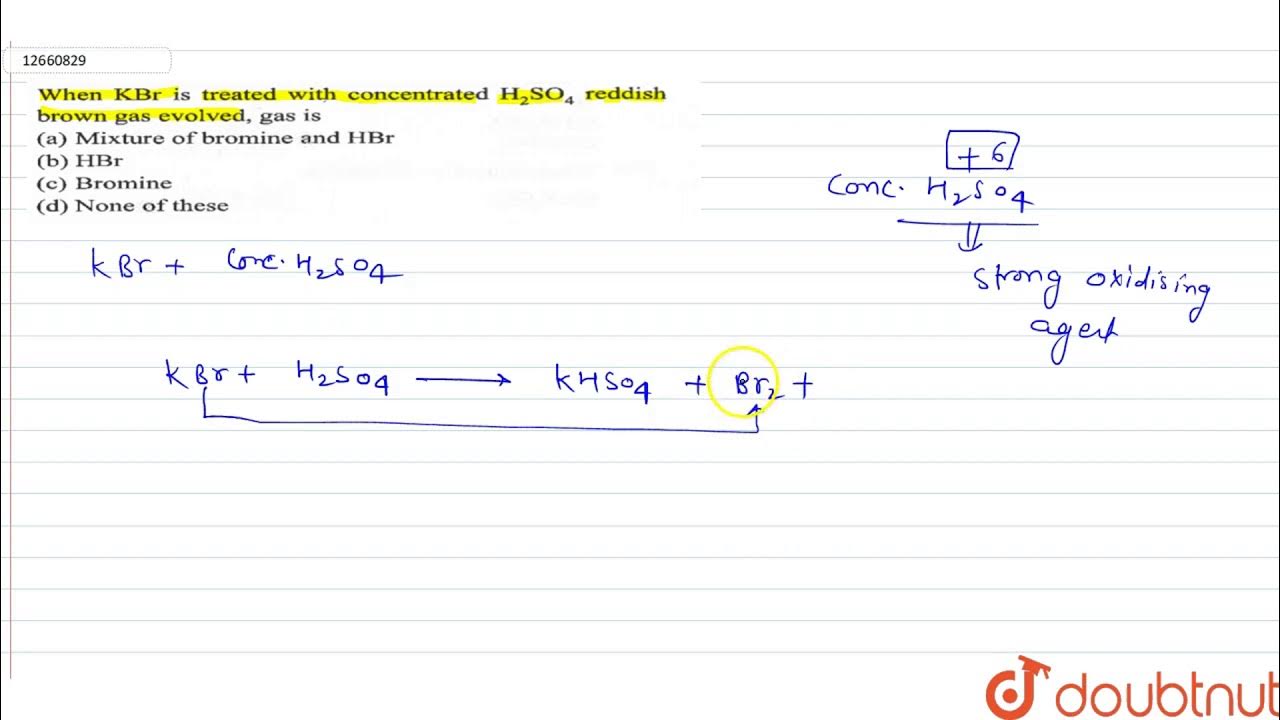 12660829
When KBr is treated with concentrated H₂SO₄ reddish
brown gas evolved, gas is
(a) Mixture of bromine and HBr
(b) HBr
(c) Bromine
(d) None of these
+ 6
Conc. H₂SO₄
strong oxidising
agent
KBr + Conc. H₂SO₄
KBr + H₂SO₄ ⟶ KHSO₄ + Br₂ +
doubtnut